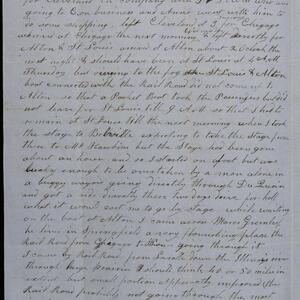 for Cleveland in Company with Mr who are
going to on business went with him to
do some shopping. left Cleveland at 3 Chicago
arrived at Chicago the next morning left directly for
Alton & St Louis arrived at Alton about 2 Oclock the
next night & should have been at St Louis at 4 still
Thursday but owing to the fog the St Louis & Alton
boat connected with the Rail Road did not come up to
Alton so a Packet Boat took the Passengers but did
not leave for St Louis till 9 so that I had to
remain at St Louis till the next morning when I took
the stage to Belville expecting to take the Stage from
then to but the Stage had been gone
about an hour and so I started on foot but was
lucky enough to be overtaken by a man alone in
a buggy wagon going directly through Du Quoin
and got a ride directly there two days sooner for half
what it would cost me to go by stage while waiting
on the boat at Alton I came across Moses Greenleaf
he lives in Springfield a very flourishing place the
Rail Road from Chicago to Alton going through it
I came by Rail Road from Lasalle down the Illinois river
through large prairies I should think 40 or 50 miles in
extent but small portion apparently improved the
Rail Road probably not going through the most